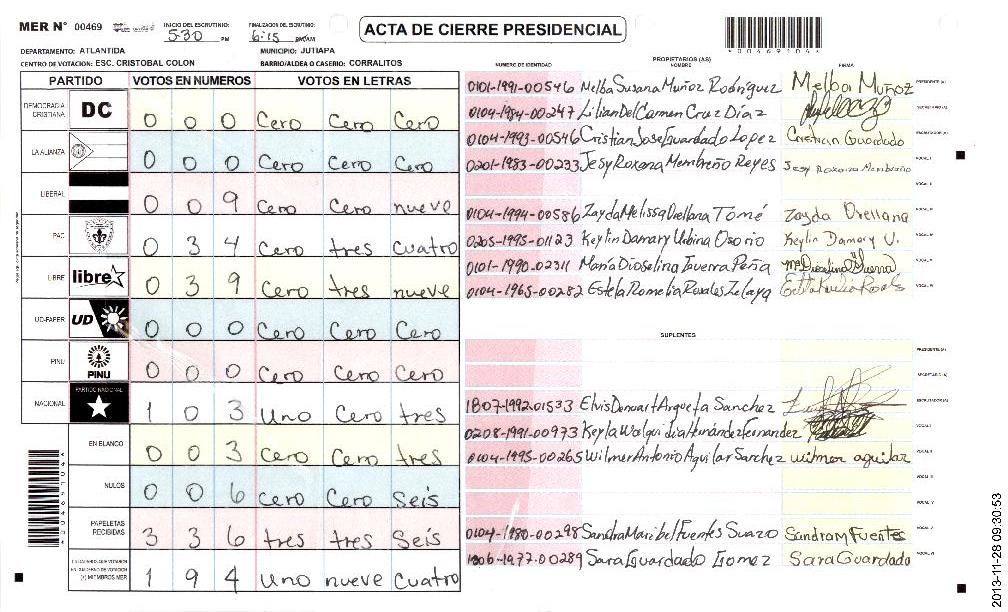 MER Nº 00469
INICIO DEL ESCRUTINIO: 5:30 PM
FINALIZACION DEL ESCRUTINIO: 6:15 PM/AM
ACTA DE CIERRE PRESIDENCIAL
DEPARTAMENTO: ATLANTIDA
MUNICIPIO: JUTIAPA
CENTRO DE VOTACION: ESC. CRISTOBAL COLON
BARRIO/ALDEA O CASERIO: CORRALITOS
PARTIDO VOTOS EN NUMEROS VOTOS EN LETRAS
DEMOCRACIA CRISTIANA DC 0 0 0 Cero Cero Cero
LA ALIANZA 0 0 0 Cero Cero Cero
LIBERAL 0 0 9 Cero Cero nueve
PAC 0 3 4 Cero tres cuatro
LIBRE libre 0 3 9 Cero tres nueve
UD-FAPER UD 0 0 0 Cero Cero Cero
PINU PINU 0 0 0 Cero Cero Cero
NACIONAL PARTIDO NACIONAL 1 0 3 Uno Cero tres
EN BLANCO 0 0 3 Cero Cero tres
NULOS 0 0 6 Cero Cero Seis
PAPELETAS RECIBIDAS 3 3 6 tres tres Seis
(+) MIEMBROS MER 1 9 4 Uno nueve cuatro
PROPIETARIOS (AS)
NUMERO DE IDENTIDAD NOMBRE FIRMA
0101-1991-00546 Melba Susana Muñoz Rodríguez Melba Muñoz PRESIDENTE (A)
0104-1984-00247 Lilian Del Carmen Cruz Díaz SECRETARIO (A)
0104-1993-00546 Cristian Jose Guardado Lopez Cristian Guardado ESCRUTADOR (A)
0201-1983-00233 Jesy Roxana Membreño Reyes Jesy Roxana Membreño VOCAL I
VOCAL II
0104-1994-00586 Zayda Melissa Orellana Tomé Zayda Orellana VOCAL III
0205-1995-01123 Keylin Damary Urbina Osorio Keylin Damary U. VOCAL IV
0101-1990-02311 María Dioselina Guerra Peña Mª Dioselina Guerra VOCAL V
0104-1965-00282 Estela Romelia Rosales Zelaya VOCAL VI
SUPLENTES
PRESIDENTE (A)
SECRETARIO (A)
1807-1992-01533 Elvis Argueta Sanchez ESCRUTADOR (A)
0208-1991-00973 Keyla Hernández Fernandez VOCAL I
0104-1995-00265 Wilmer Antonio Aguilar Sanchez wilmer aguilar VOCAL II
VOCAL III
VOCAL IV
0104-1980-00298 Sandra Maribel Fuentes Suazo Sandra M Fuentes VOCAL V
1806-1977-00289 Sara Guardado Gomez Sara Guardado VOCAL VI
2013-11-28 09:30:53